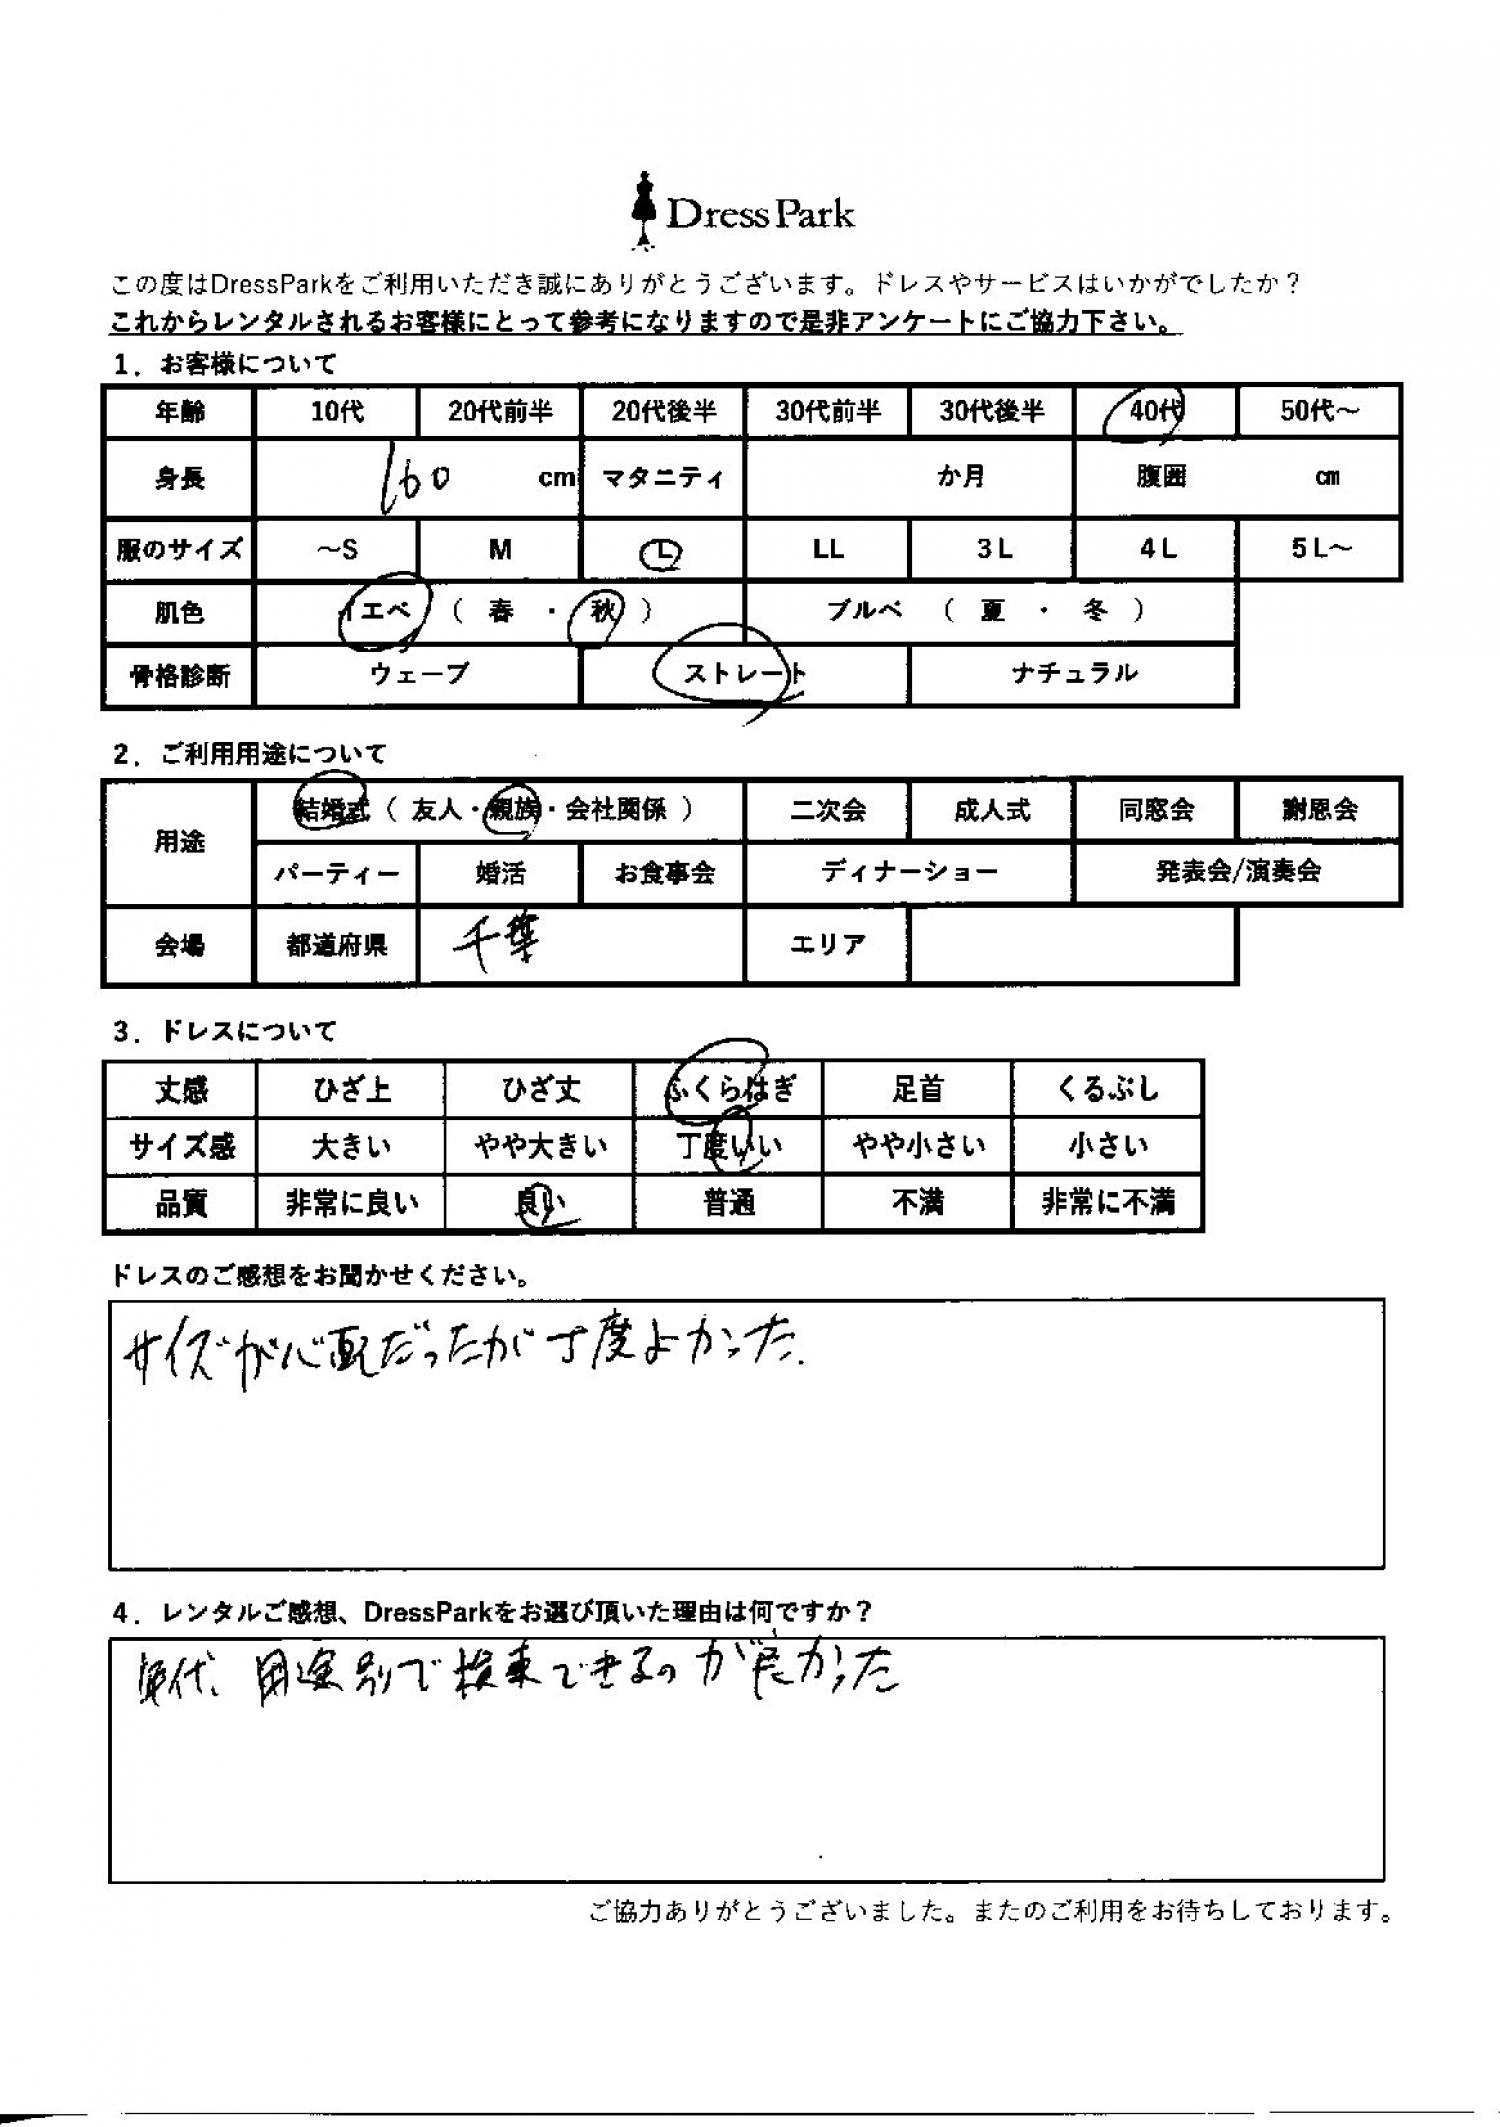 Dress Park
この度はDressParkをご利用いただき誠にありがとうございます。ドレスやサービスはいかがでしたか？
これからレンタルされるお客様にとって参考になりますので是非アンケートにご協力下さい。
1．お客様について
年齢 10代 20代前半 20代後半 30代前半 30代後半 40代 50代～
身長 160 cm マタニティ か月 腹囲 ㎝
服のサイズ ～S M L LL 3L 4L 5L～
肌色 イエベ（ 春 ・ 秋 ） ブルベ （ 夏 ・ 冬 ）
骨格診断 ウェーブ ストレート ナチュラル
2．ご利用用途について
用途 結婚式（ 友人・親族・会社関係 ） 二次会 成人式 同窓会 謝恩会
パーティー 婚活 お食事会 ディナーショー 発表会/演奏会
会場 都道府県 千葉 エリア
3．ドレスについて
丈感 ひざ上 ひざ丈 ふくらはぎ 足首 くるぶし
サイズ感 大きい やや大きい 丁度いい やや小さい 小さい
品質 非常に良い 良い 普通 不満 非常に不満
ドレスのご感想をお聞かせください。
サイズが心配だったが丁度よかった.
4．レンタルご感想、DressParkをお選び頂いた理由は何ですか？
年代、用途別で検索できるのが良かった
ご協力ありがとうございました。またのご利用をお待ちしております。